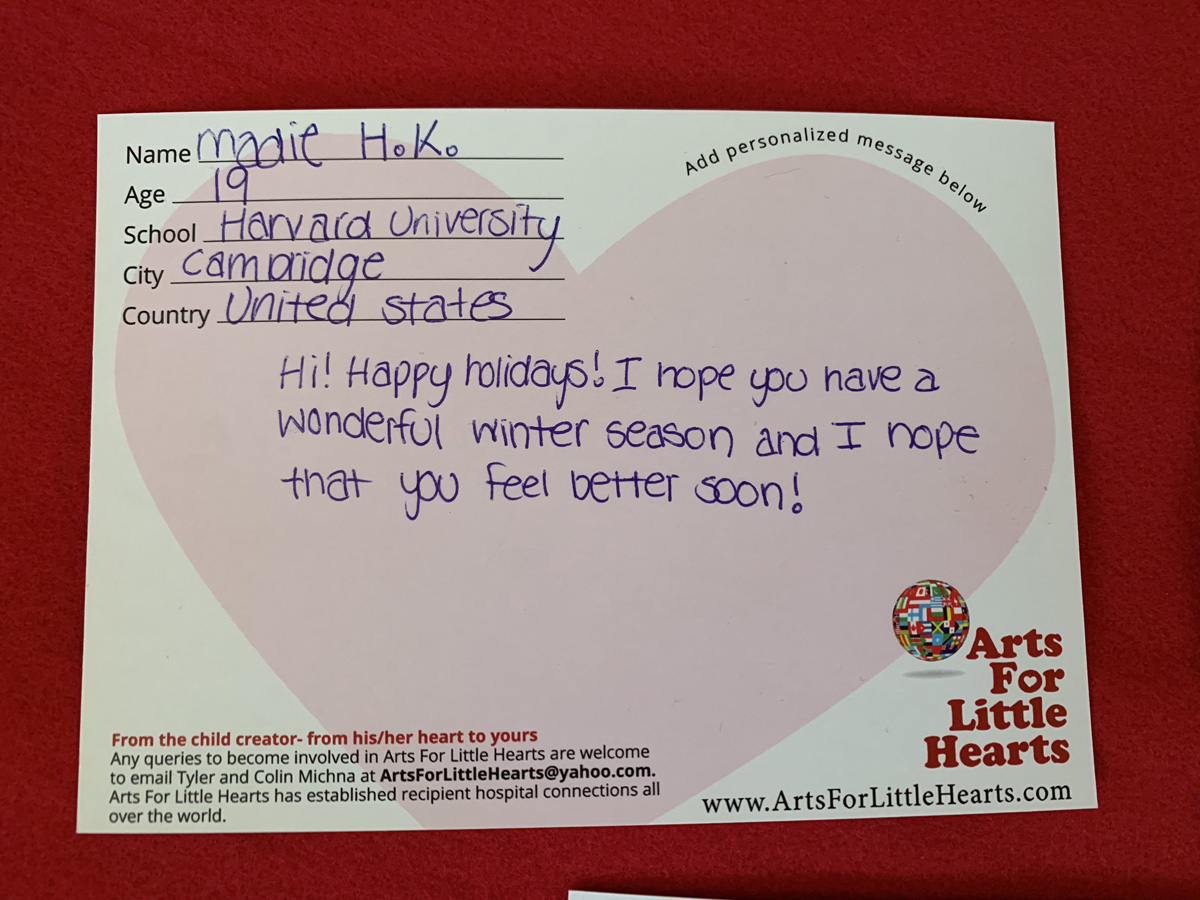 Name Madie H.K.
Age 19
School Harvard University
City Cambridge
Country United States
Add personalized message below
Hi! Happy holidays! I hope you have a
wonderful winter season and I hope
that you feel better soon!
Arts
For
Little
Hearts
www.ArtsForLittleHearts.com
From the child creator- from his/her heart to yours
Any queries to become involved in Arts For Little Hearts are welcome
to email Tyler and Colin Michna at ArtsForLittleHearts@yahoo.com.
Arts For Little Hearts has established recipient hospital connections all
over the world.